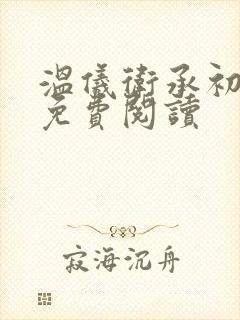 溫儀衛承初
免費閱讀
寂海沉舟